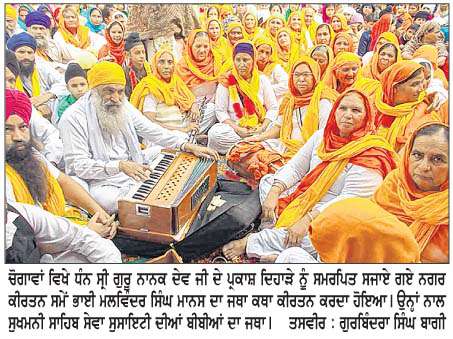 ਚੋਗਾਵਾਂ ਵਿਖੇ ਧੰਨ ਸ੍ਰੀ ਗੁਰੂ ਨਾਨਕ ਦੇਵ ਜੀ ਦੇ ਪ੍ਰਕਾਸ਼ ਦਿਹਾੜੇ ਨੂੰ ਸਮਰਪਿਤ ਸਜਾਏ ਗਏ ਨਗਰ
ਕੀਰਤਨ ਸਮੇਂ ਭਾਈ ਮਲਵਿੰਦਰ ਸਿੰਘ ਮਾਨਸ ਦਾ ਜਥਾ ਕਥਾ ਕੀਰਤਨ ਕਰਦਾ ਹੋਇਆ। ਉਨ੍ਹਾਂ ਨਾਲ
ਸੁਖਮਨੀ ਸਾਹਿਬ ਸੇਵਾ ਸੁਸਾਇਟੀ ਦੀਆਂ ਬੀਬੀਆਂ ਦਾ ਜਥਾ। ਤਸਵੀਰ : ਗੁਰਬਿੰਦਰਾ ਸਿੰਘ ਬਾਗੀ